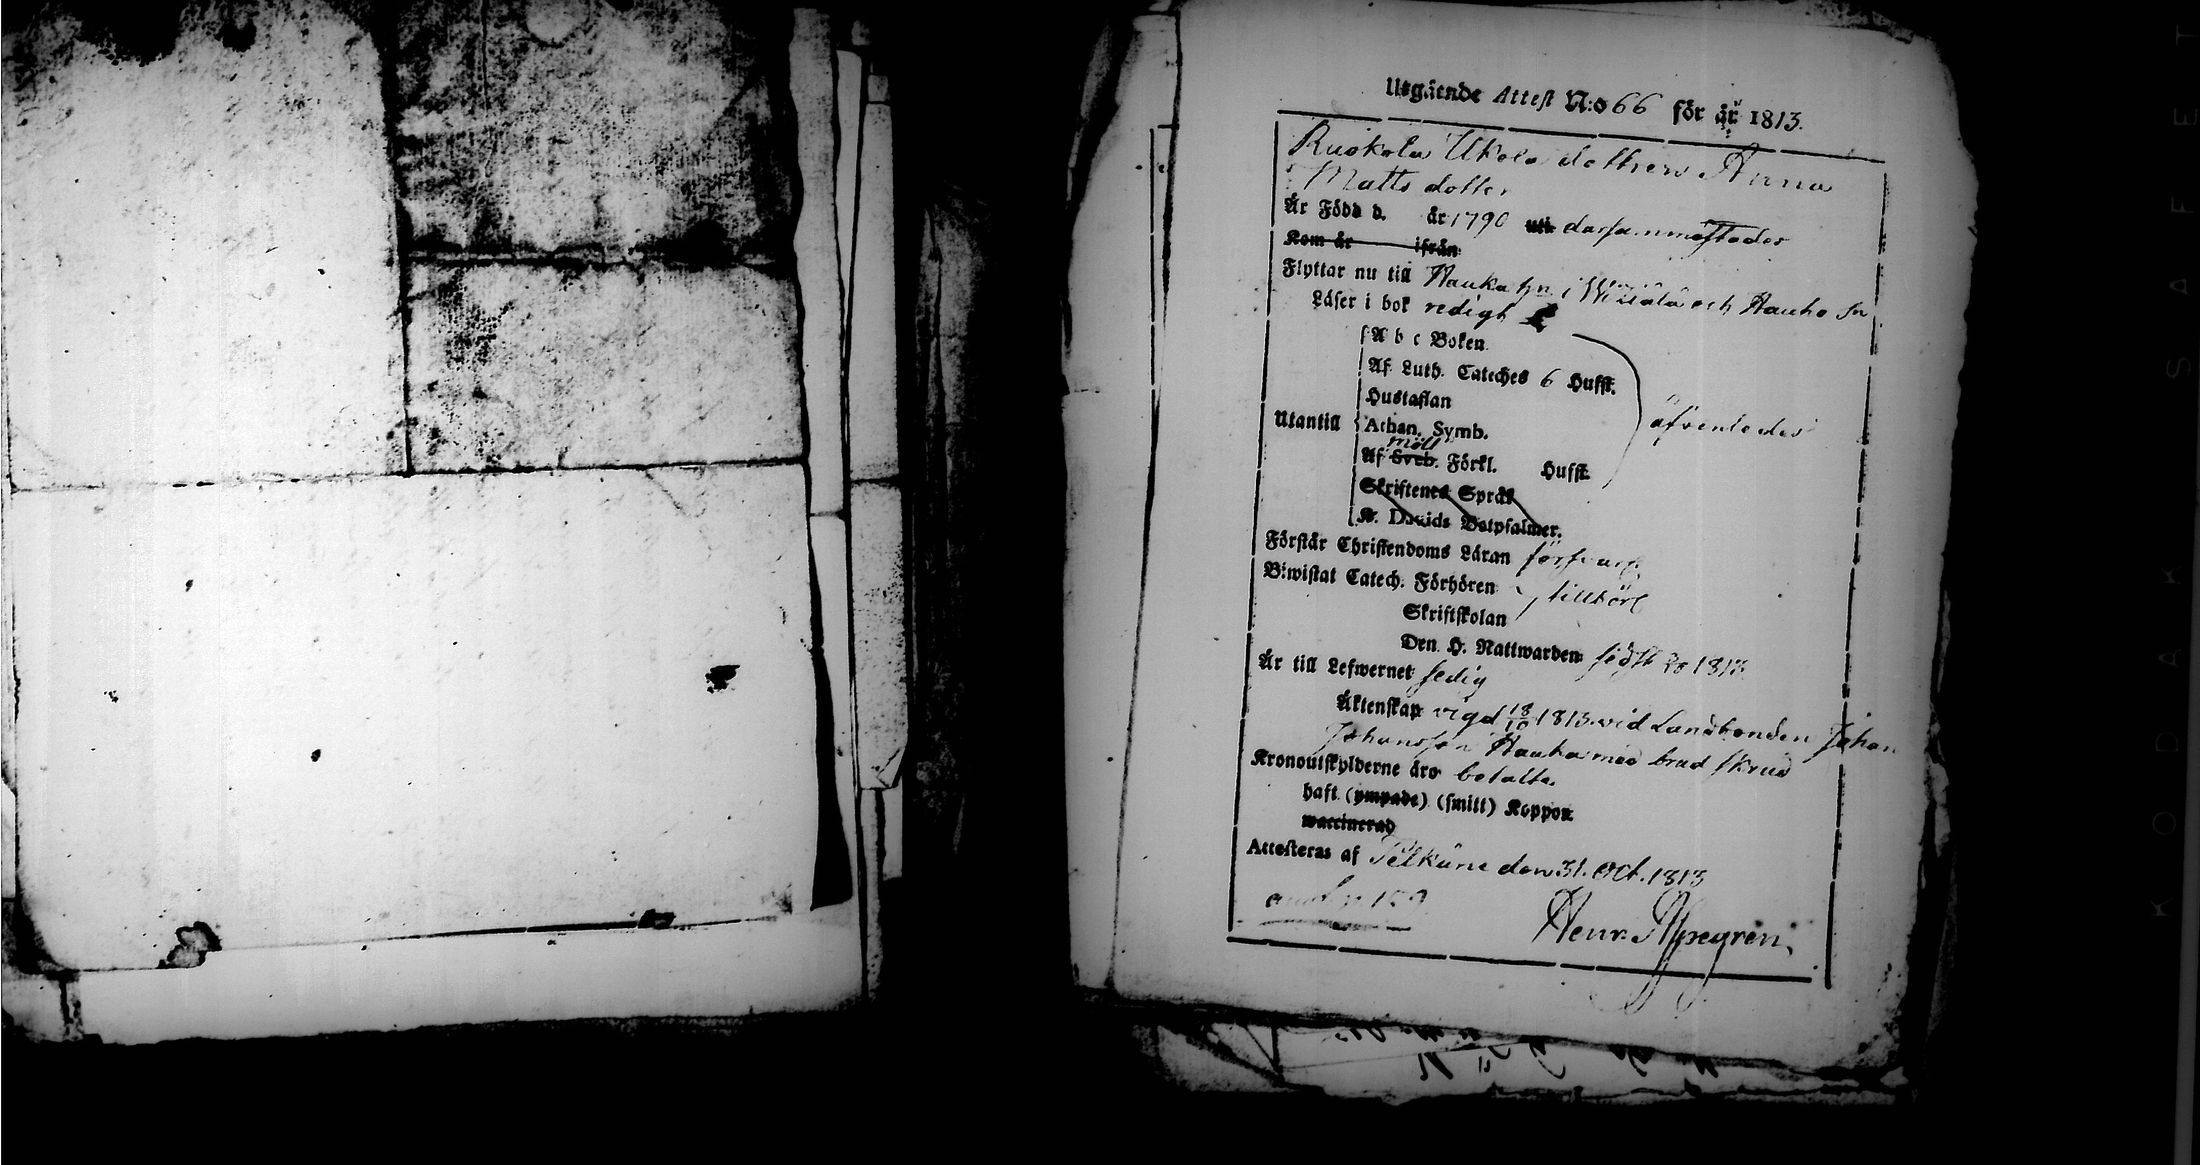 Utgående Attest N:o 66 för år 1813.
Ruokola Ukola dottren Anna
Matts dotter
Är Född d. år 1790 uti darsammastädes
Kom år ifrån
Flyttar nu till Hauka hn i Wiiala och Hauho Sn
Läser i bok redigt
A b c Boken
Af Luth. Cateches 6 Hufst.
Hustaflan
Utantill Athan. Symb. äfvenledes
Möll
Af Sveb. Förkl. Hufst.
Skriftenes Språk
K. Davids Botpsalmer.
Förstår Christendoms Läran försvarl.
Biwistat Catech. Förhören tillbörl
Skriftskolan
Den H. Nattwarden sidst 1813
Är till Lefwernet sedig
Äktenskap vigd 18/10 1813 vid Landbonden Johan
Johansson Hauka med brud skrud
Kronoutskylderne äro betalte
haft (ympade) (smitt) Koppor
waccinerad
Attesteras af Pelkäne den 31. Oct. 1813
Henr.
KODAK SAFET